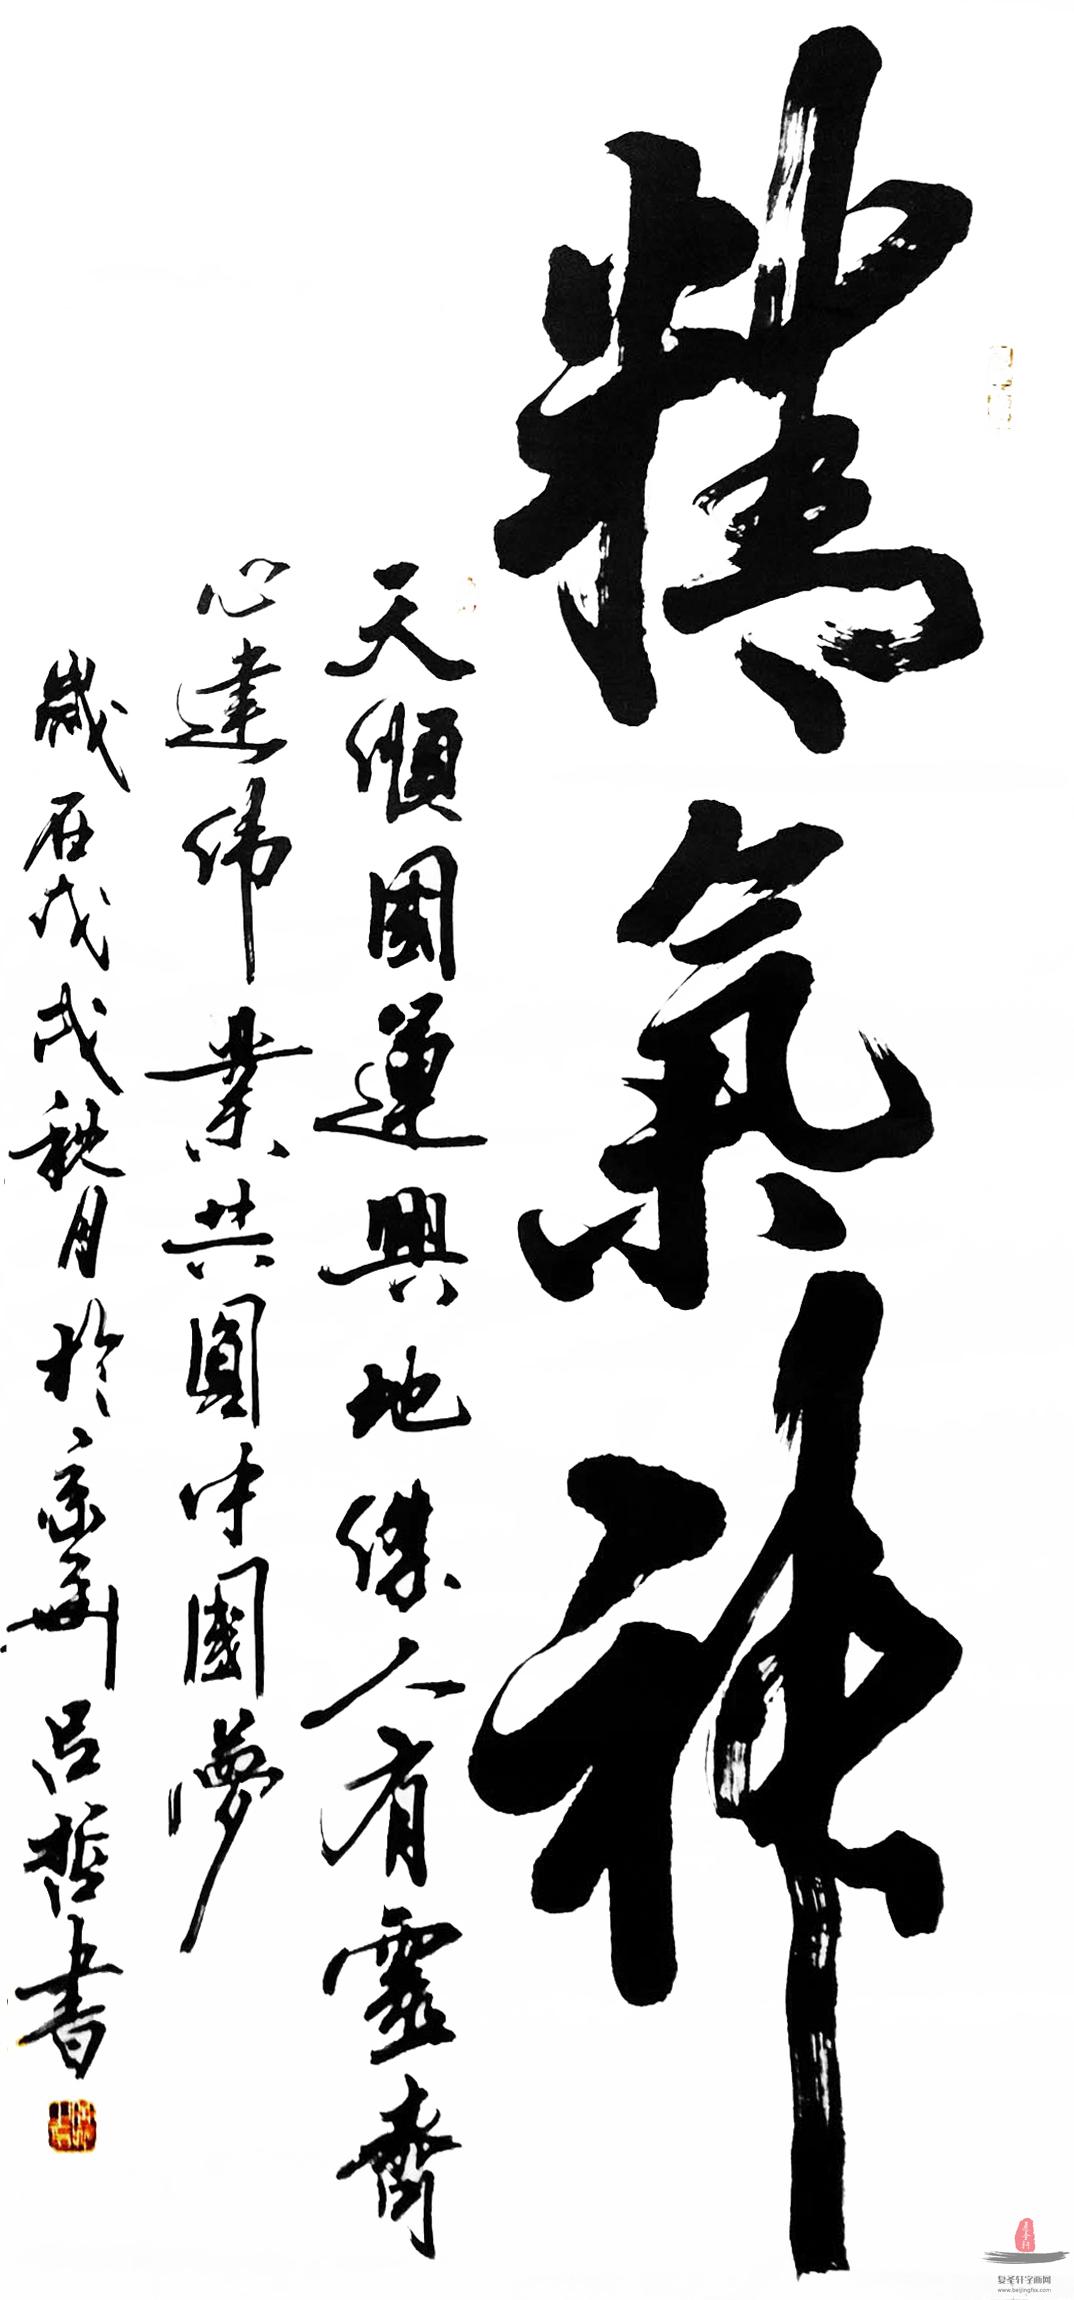 精氣神
天順國運興地傑人有靈齊
心建偉業共圓中國夢
歲在戊戌秋月於京華呂哲書
复圣轩字画网
www.beijingfsx.com